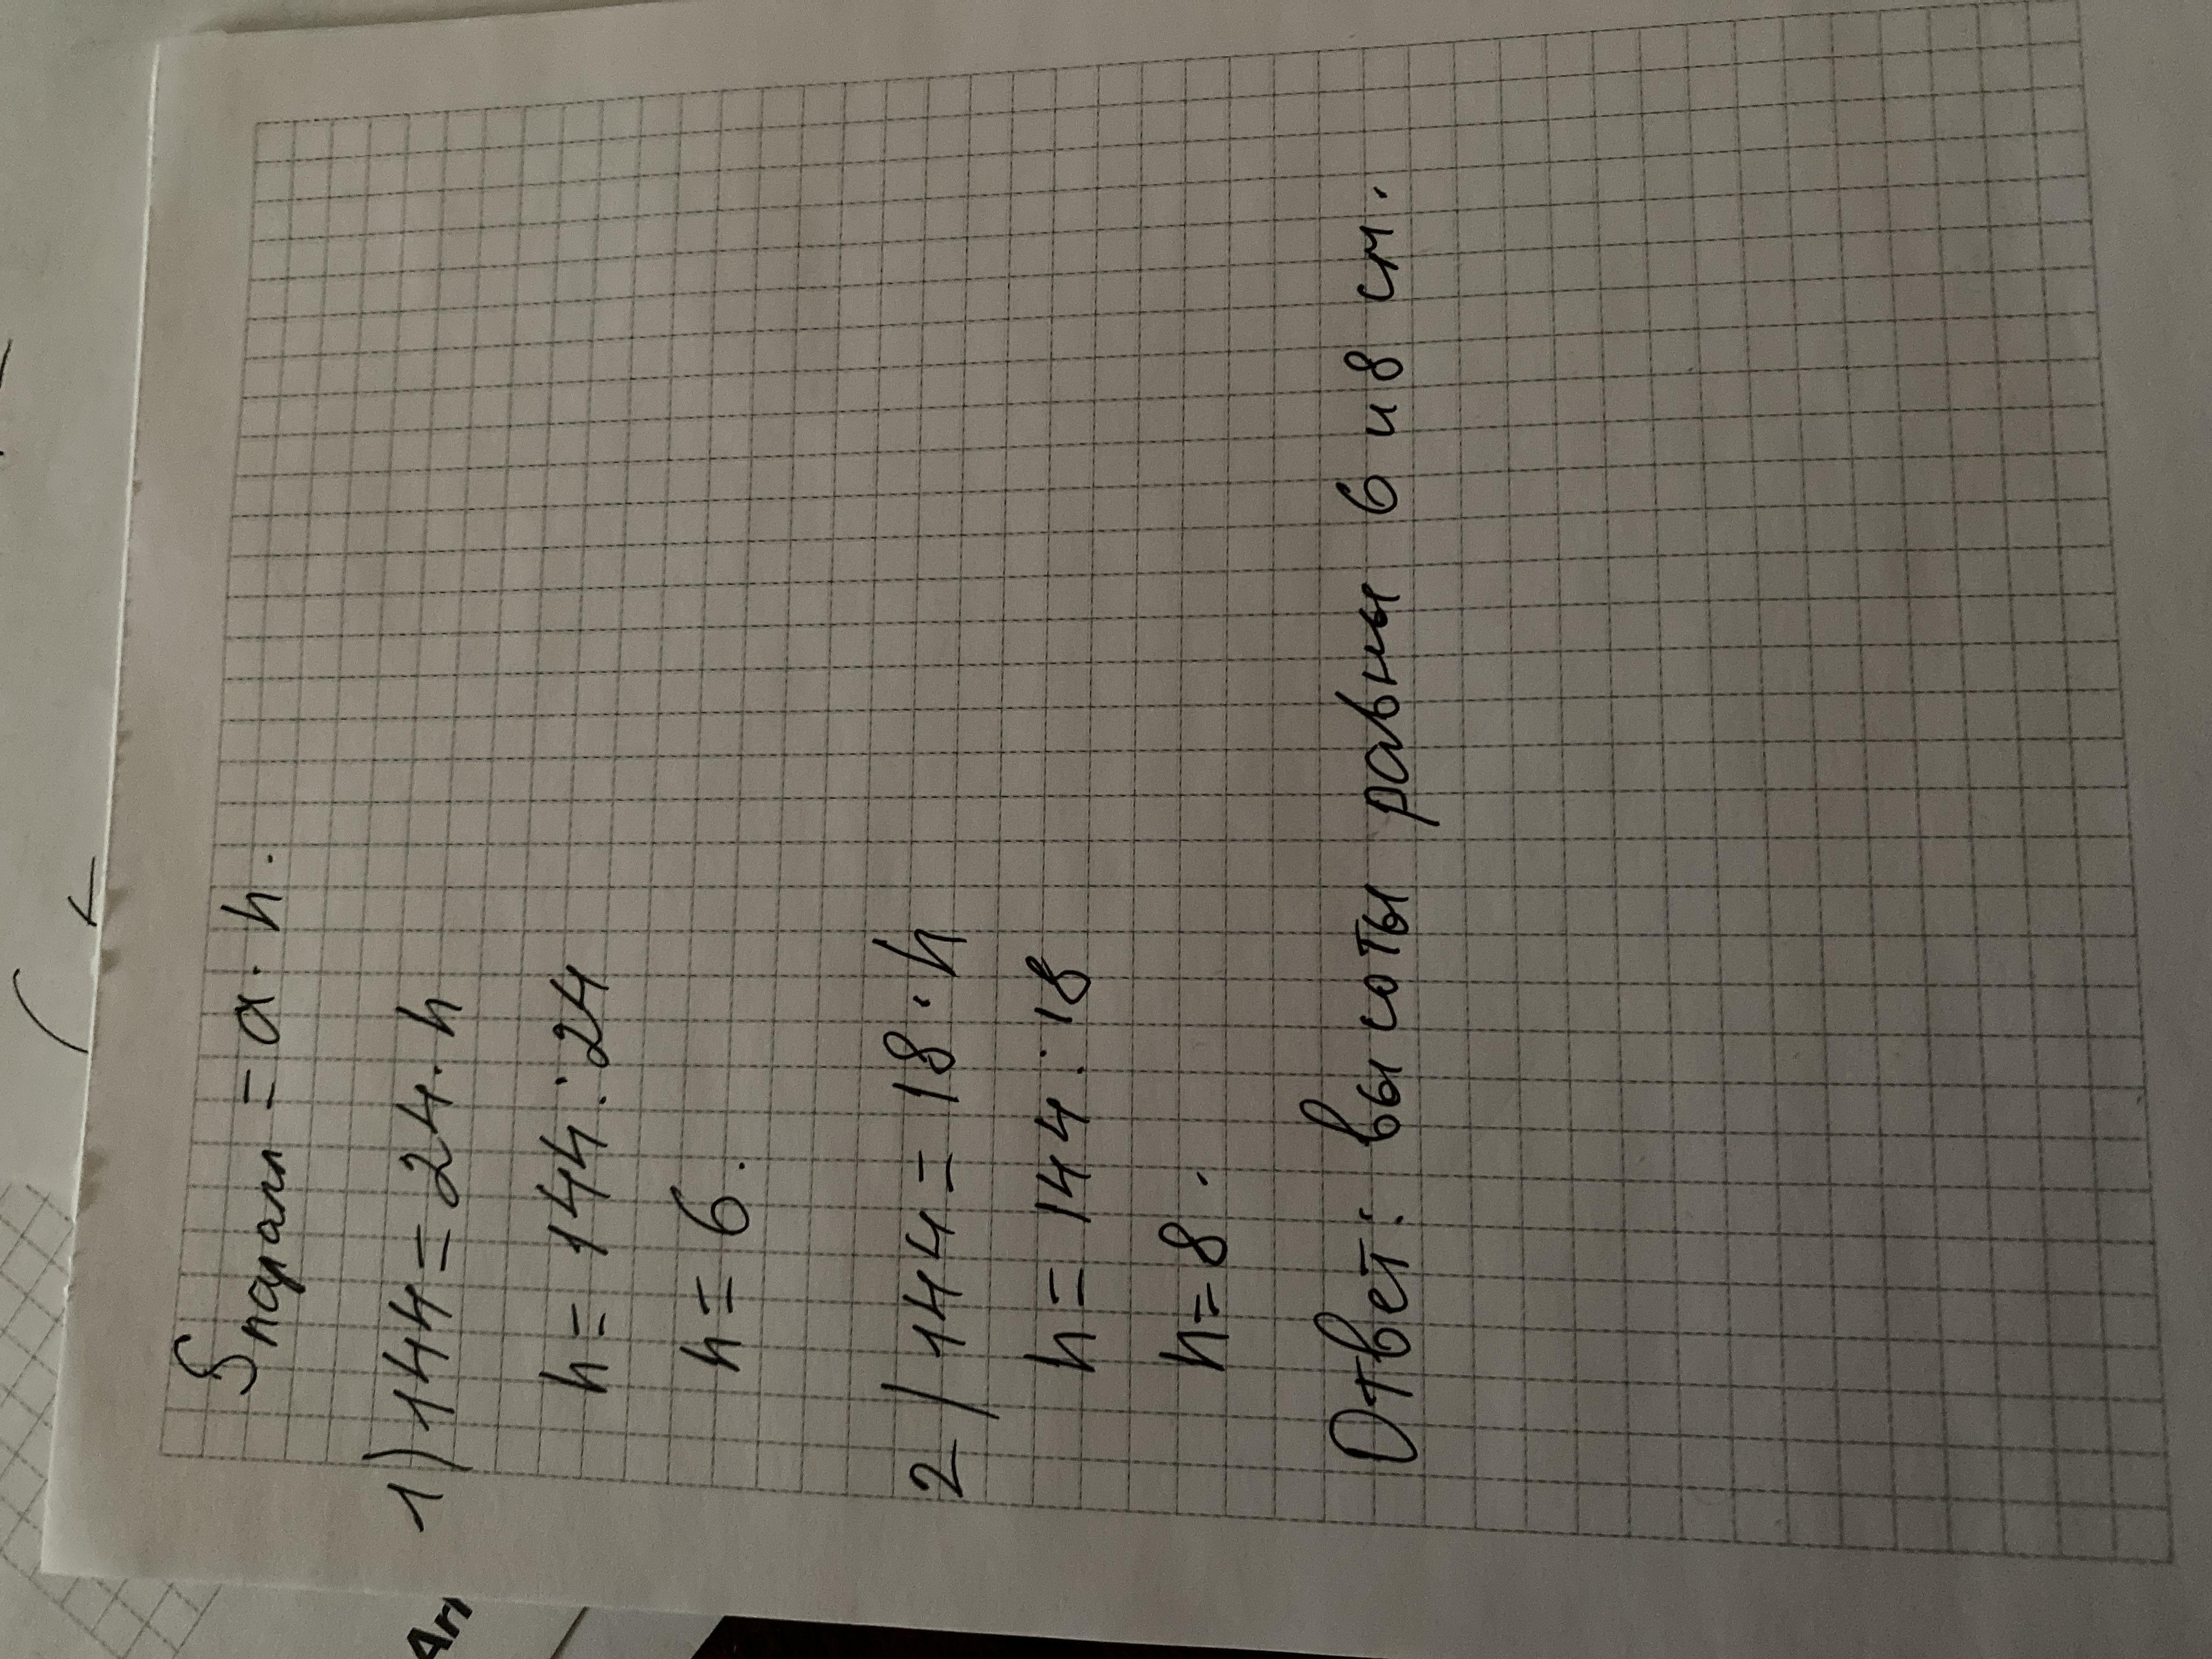 Sпарал = a · h.
1) 144 = 24 · h
h = 144 : 24
h = 6.
2) 144 = 18 · h
h = 144 : 18
h = 8.
Ответ: высоты равны 6 и 8 см.